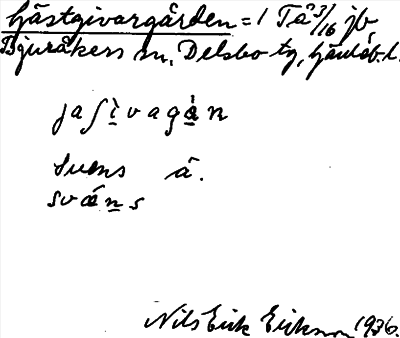 Gästgivargården = 1 Tå 3/16 jb
Bjuråkers sn, Delsbo tg, Gävleb. l.
jasìvagàn
Svens å.
sváns
Nils Erik Eriksson 1936.